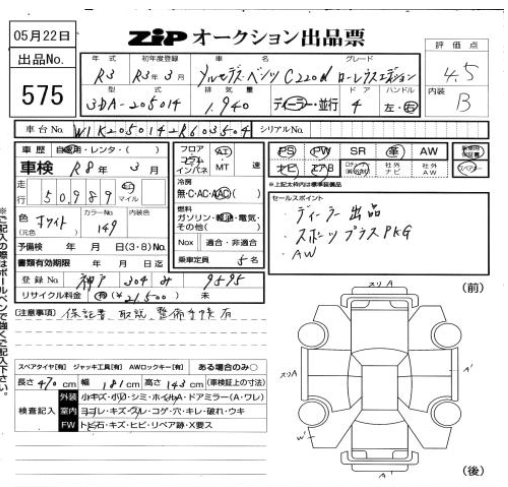 05月22日
ZIP オークション出品票
出品No.
575
年式 初年度登録 車名 グレード
R3 R3年3月 メルセデス・ベンツ C220d ローレウスエディション
型式 排気量 ドア ハンドル
3DA-205014 1,940 ディーラー・並行 4 左・右
評価点
4.5
内装
B
車台No. W1K2050142R603504 シリアルNo.
車歴 自家用・レンタ・( )
車検 R8年 3月
走行 50989 km マイル
色 ホワイト
(元色)
カラーNo. 149
内装色
予備検 年 月 日(3・8)No.
書類有効期限 年 月 日迄
登録No. 神戸 304 み 9595
リサイクル料金 有(¥21,500) 未
フロア AT
インパネ MT 速
冷房
無・C・AC・AAC( )
燃料
ガソリン・軽油・電気・
その他( )
Nox 適合・非適合
乗車定員 5名
PS PW SR 革 AW
ナビ エアB 社外ナビ 社外AW
※上記太枠内は標準装備品
セールスポイント
・ディーラー出品
・スポーツプラスPKG
・AW
(注意事項) 保証書 取説 整備手帳 有
スペアタイヤ[有] ジャッキ工具[有] AWロックキー[有] ある場合のみ○
長さ 470 cm 幅 181 cm 高さ 143 cm (車検証上の寸法)
検査記入
外装 小キズ・小凹・シミ・ホイルA・ドアミラー(A・ワレ)
室内 ヨゴレ・キズ・スレ・コゲ・穴・キレ・破れ・ウキ
FW トビ石・キズ・ヒビ・リペア跡・X要ス
(前)
スリA
スリA
A'
W'
A'
(後)
※ご記入の際はボールペンで強くご記入下さい。